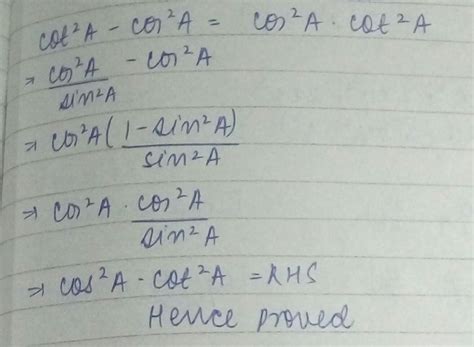 cot²A - cos²A = cos²A . cot²A
⇒ cos²A/sin²A - cos²A
⇒ cos²A(1-sin²A)/sin²A
⇒ cos²A . cos²A/sin²A
⇒ cos²A - cot²A = RHS
Hence proved